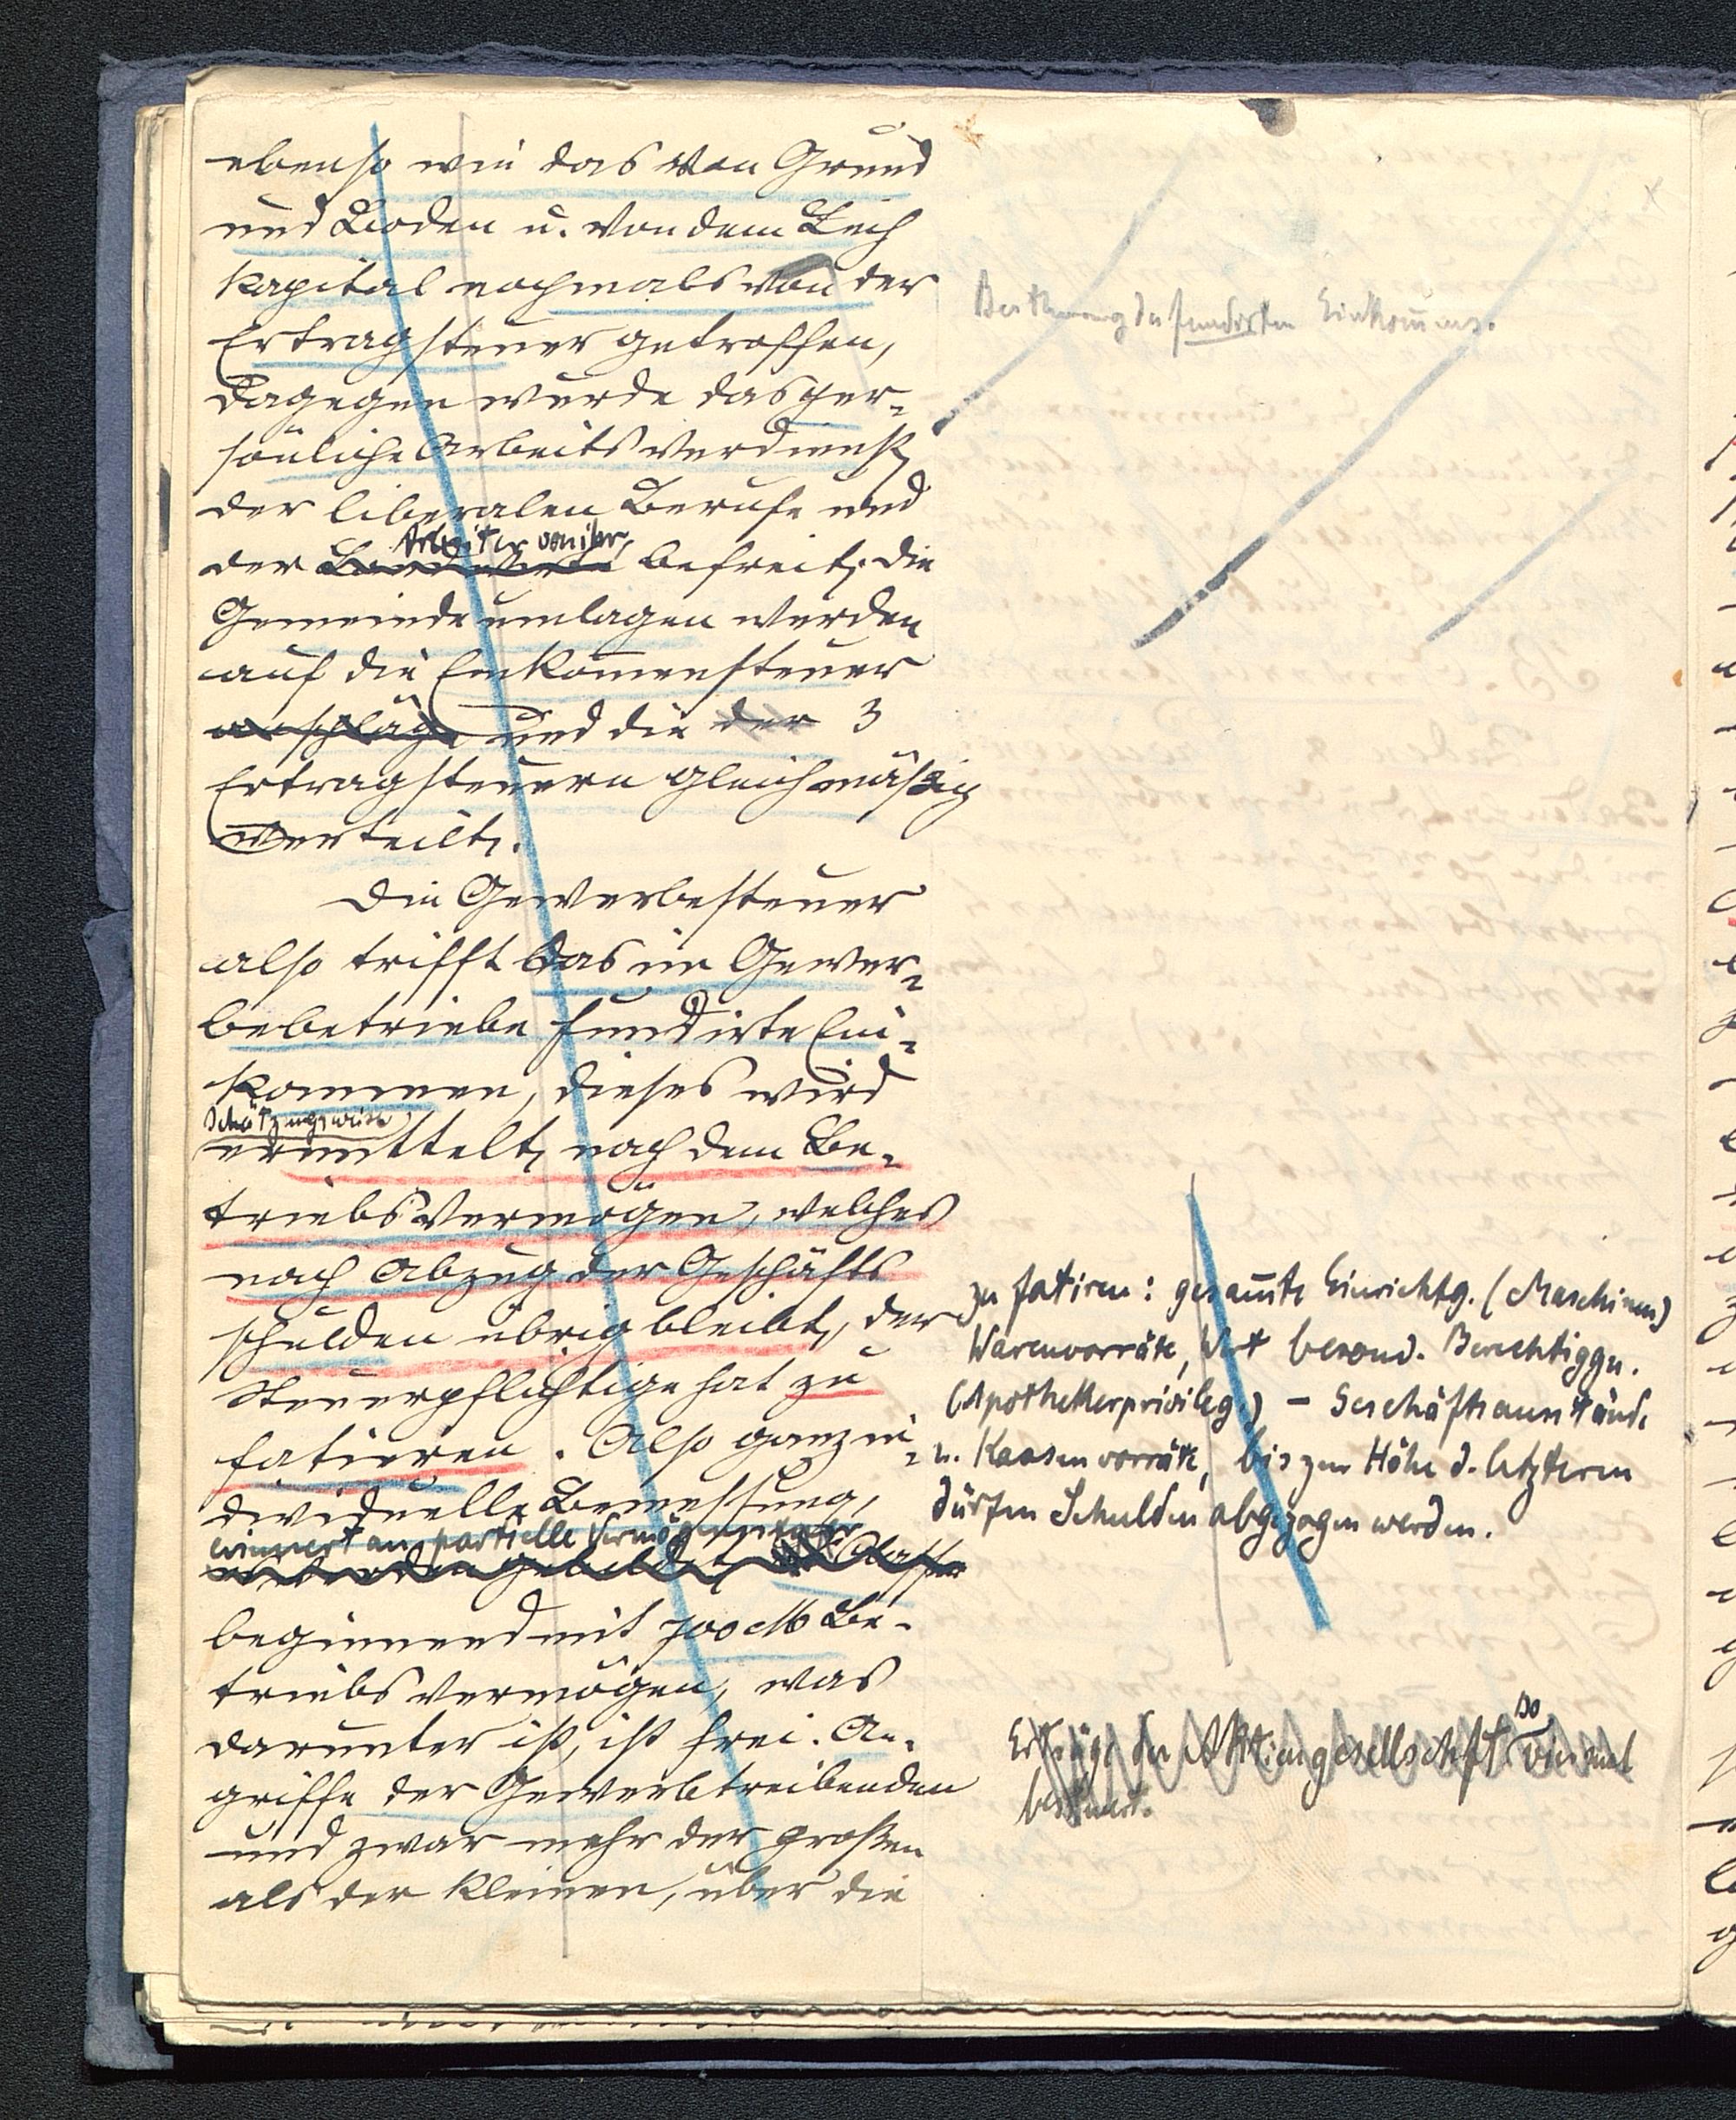 ebenso wie das von Grund
und Boden u. von dem Leih
kapital nochmals von der
Ertragsteuer getroffen,
dagegen wurde das per-
sönliche Arbeitsverdienst
der liberalen Berufe und
Arbeiter von ihr,
der befreit; die
Gemeindeumlagen werden
auf die Einkommensteuer
anschläge und die der 3
Ertragsteuern gleichmäßig
verteilt.
Die Gewerbesteuer
also trifft das im Gewer-
bebetriebe fundirte Ein-
kommen, dieses wird
schätzungsweise
ermittelt, nach dem Be-
triebsvermögen, welches
nach Abzug der Geschäfts
schulden übrig bleibt, der
Steuerpflichtige hat zu
fatieren. Also ganz in-
dividuelle Bemessung,
erinnert an partielle Vermögenssteuer
Classen
beginnend mit 700 M Be-
triebsvermögen, was
darunter ist, ist frei. An-
griffe der Gewerbtreibenden
und zwar mehr der großen
als der kleinen, über die
Besteuerung des fundirten Einkommens.
zu fatiren: gesamte Einrichtg. (Maschinen)
Warenvorräte, Wert besond. Berechtiggn.
(Apothekerprivileg.) – Geschäftsausstände
u. Kassenvorräte, bis zur Höhe d. letzteren
dürfen Schulden abgezogen werden.
so
Erträge der Aktiengesellschaft viermal
besteuert.